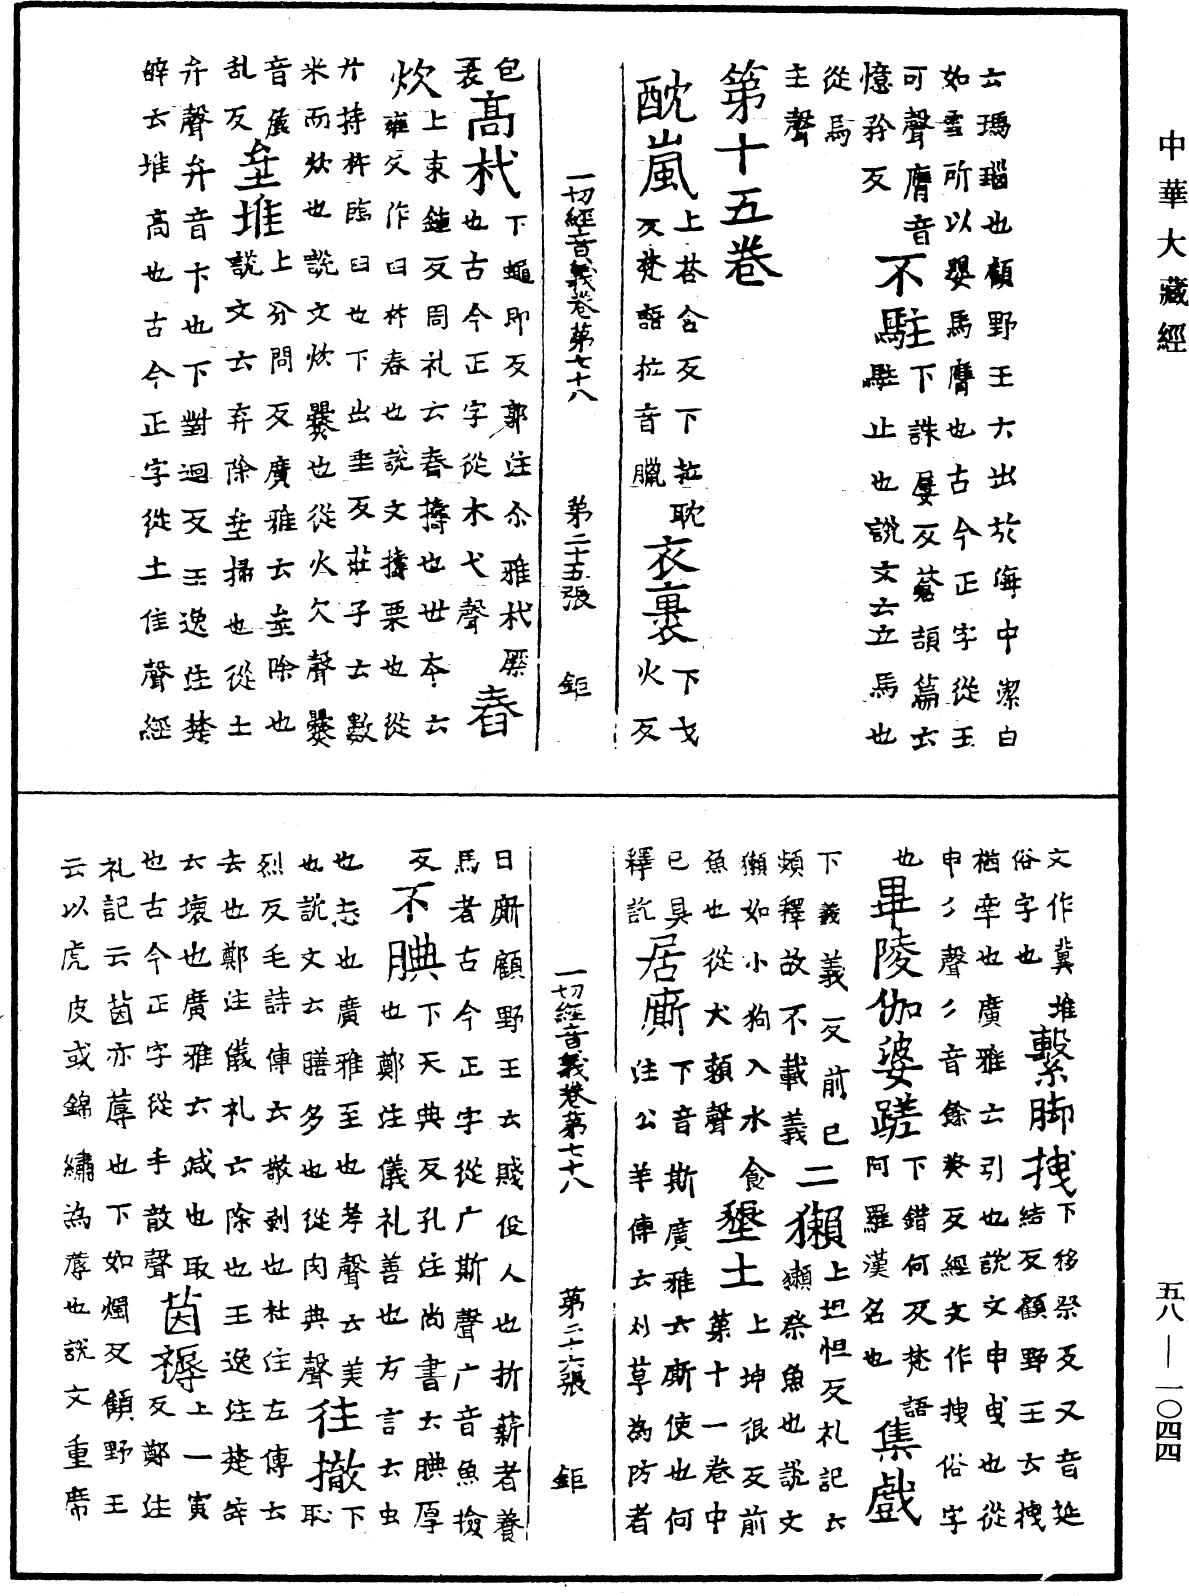 中華大藏經
云瑪瑙也顧野王云出於海中潔白
如雪所以嬰馬膺也古今正字從玉
可聲膺音不駐下誅屢反蒼頡篇云
憶矜反駐止也說文云立馬也
從馬
主聲
第十五卷
酖嵐上荅含反下拉耽衣裹下戈
反梵語拉音臘火反
一切經音義卷第七十八 第二十五張 鉅
包高杙下蠅即反郭注尒雅杙橜舂
袤上束鍾反周礼云舂擣也世夲云
也古今正字從木弋聲
炊雍父作臼杵舂也說文擣粟也從
廾持杵臨臼也下出垂反莊子云數
米而炊也說文炊爨也從火欠聲爨
音上分問反廣雅云坌除也
乱反坌堆說文云弃除坌掃也從土
弁聲弁音卞也下對迴反王逸注楚
辤云堆高也古今正字從土隹聲經
文作蕢堆繫脚拽下移祭反又音延
俗字也結反顧野王云拽
楢牽也廣雅云引也說文申曳也從
申丿聲丿音餘㷸反經文作拽俗字
也畢陵伽婆蹉下錯何反梵語集戲
阿羅漢名也
下義義反前已二獺上坦怛反礼記云
頻釋故不載義獺祭魚也說文
獺如小狗入水食墾土上坤很反前
魚也從犬賴聲苐十一卷中
已具居廝下音斯廣雅云廝使也何
釋訖注公羊傳云刈草為防者
一切經音義卷第七十八 第二十六張 鉅
日廝顧野王云賤伇人也折薪者養
馬者古今正字從广斯聲广音魚撿
反不腆下天典反孔注尚書云腆厚
也鄭注儀礼善也方言云虫
也忘也廣雅至也考聲云美往撤下
也說文云膳多也從肉典聲恥
烈反毛詩傳云撤剥也杜注左傳云
去也鄭注儀礼云除也王逸注楚辤
云壞也廣雅云減也取茵褥上一寅
也古今正字從手散聲反鄭注
礼記云茵亦蓐也下如燭反顧野王
云以虎皮或錦繡為蓐也說文重席
五八—一〇四四